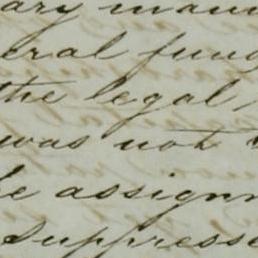 ary man
eral fund
the legal
was not
he assignm
suppresse